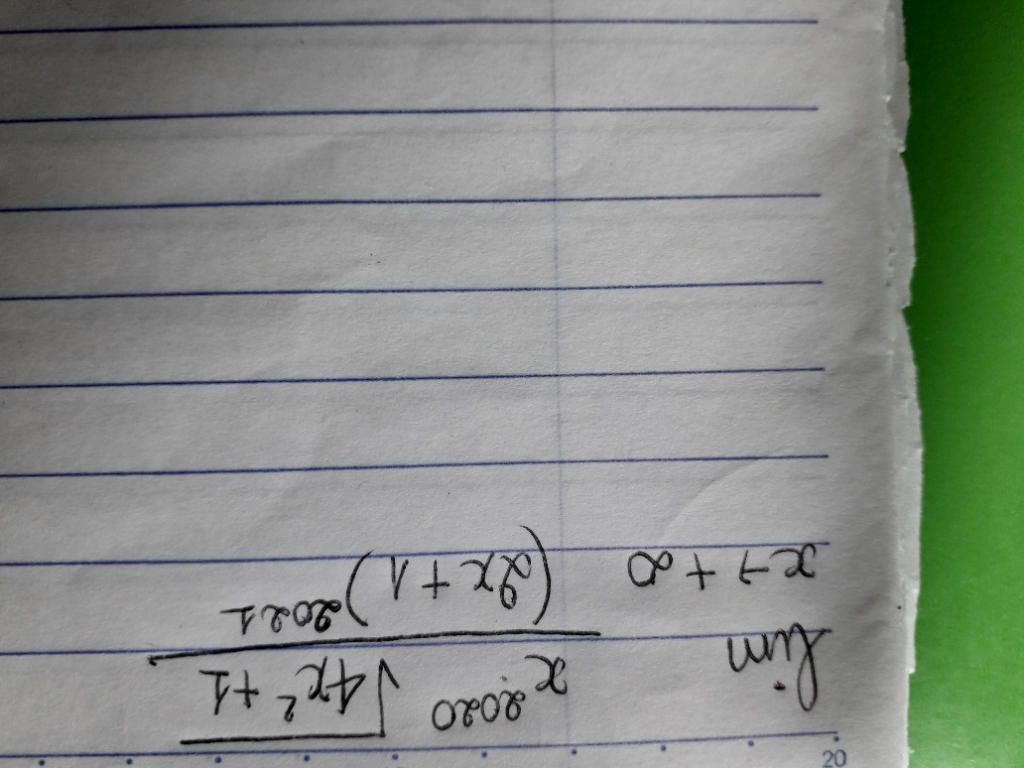 20
lim x→+∞ x^2020 √(4x²+1) / (2x+1)^2021